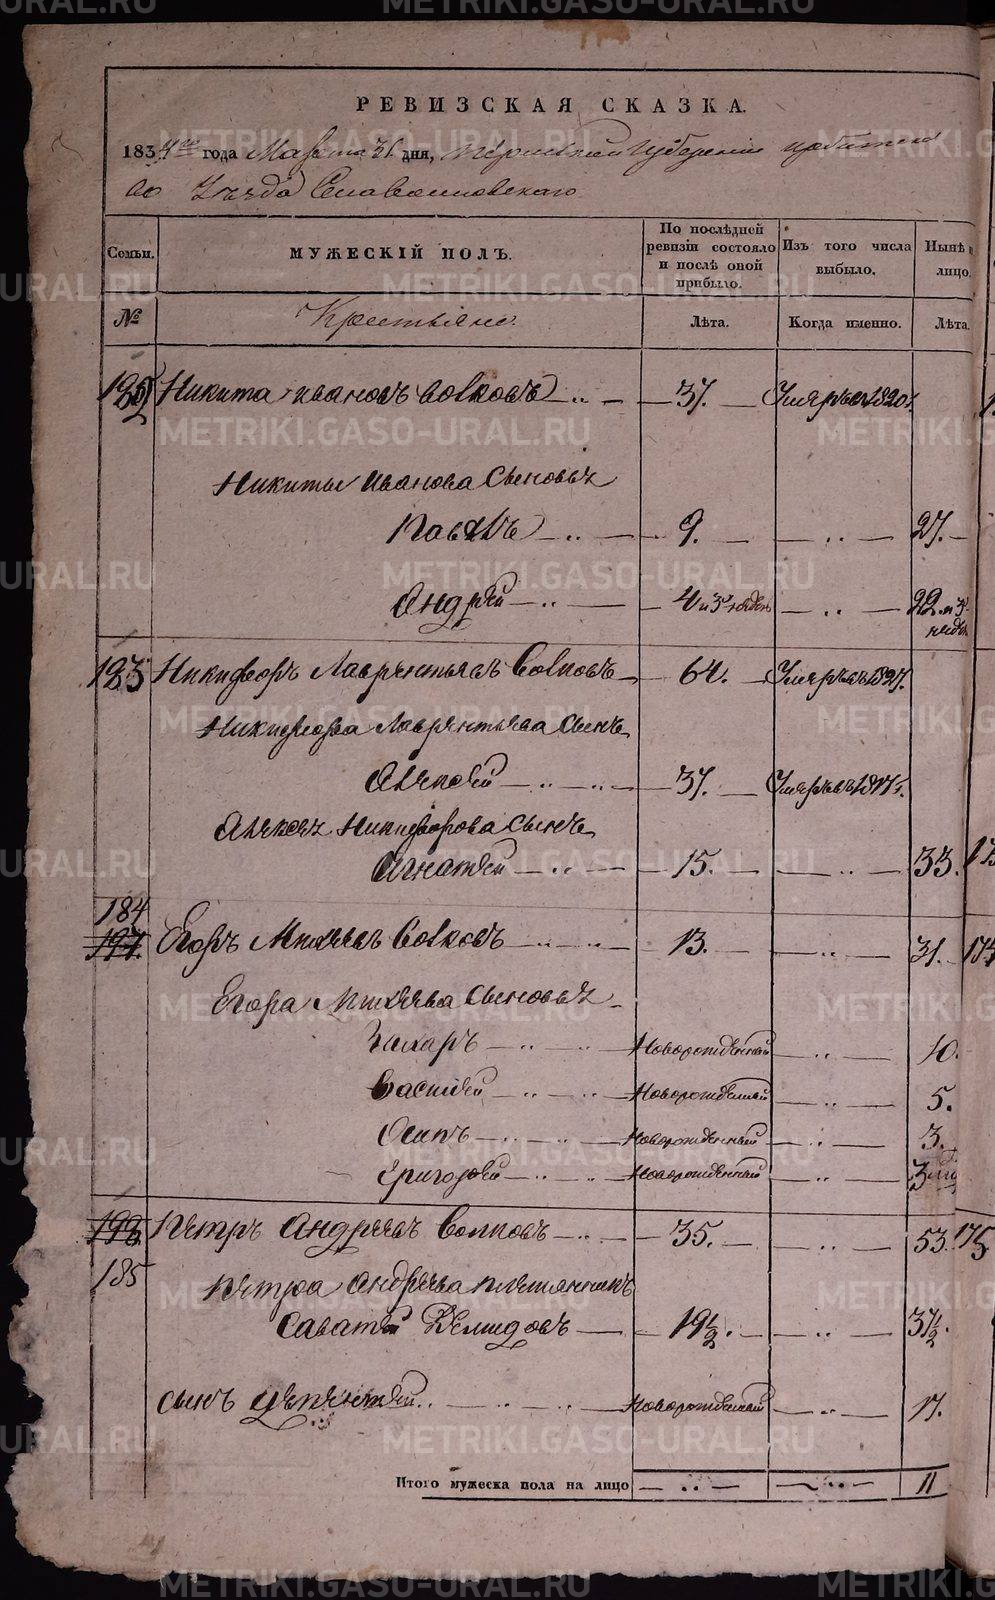 РЕВИЗСКАЯ СКАЗКА.
183 4го года Марта 31 дня, Пермской Губернии
го Уезда
Семьи. МУЖЕСКІЙ ПОЛЪ. По послѣдней ревизіи состояло и послѣ оной прибыло. Изъ того числа выбыло. Нынѣ лицо.
№ Крестьяне. Лѣта. Когда именно. Лѣта.
Никита Ивановъ Волковъ 37. Умеръ въ 1820 г.
Никиты Иванова Сыновья
Павелъ 9. 27.
Андрей 4 и 3 недел 22 и 3 недел
183 Никифоръ Лаврентьевъ Волковъ 64. Умеръ въ 1827.
Никифора Лаврентьева Сынъ
Алексей 37. Умеръ въ
Алексея Никифорова Сынъ
Игнатей 15. 33. 173
184
197. Егоръ Михеевъ Волковъ 13. 31. 174
Егора Михеева Сыновья
Захаръ Новорожденный 10.
Василей Новорожденный 5.
Осипъ Новорожденный 3.
Григорей Новорожденный 3 мц
Петръ Андреевъ Волковъ 35. 53. 175
185
Петра Андреева племянникъ
Саватей Демидовъ 19½. 37½.
сынъ Новорожденный 17.
Итого мужеска пола на лицо 11
METRIKI.GASO-URAL.RU